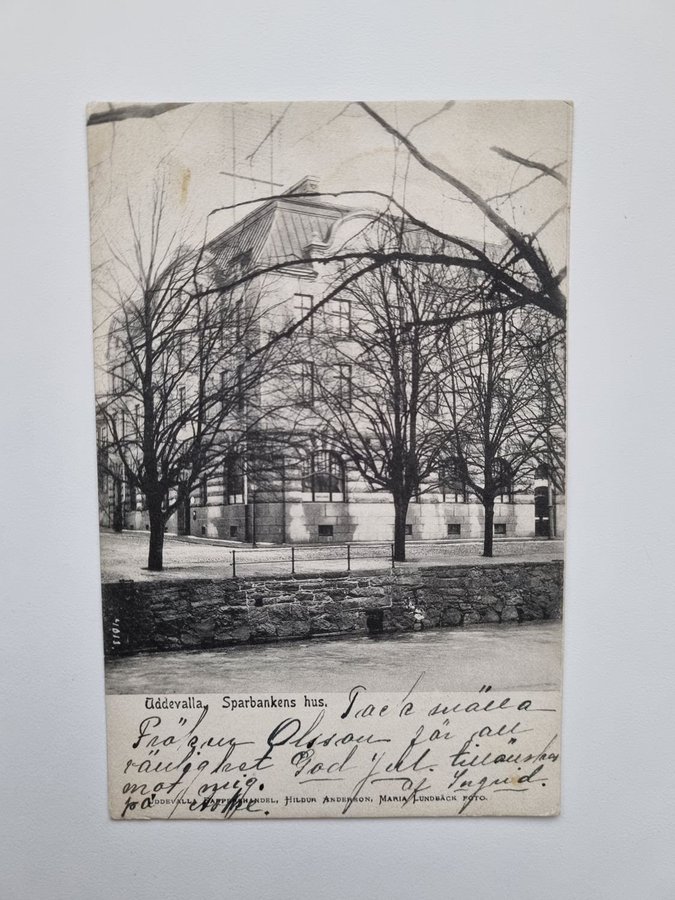 Uddevalla, Sparbankens hus. Tack snälla
Fröken Olsson för all
vänlighet God Jul tillönskas
mot mig. af Ingrid.
på
UDDEVALLA PAPPERSHANDEL, HILDUR ANDERSON, MARIA LUNDBÄCK FOTO.